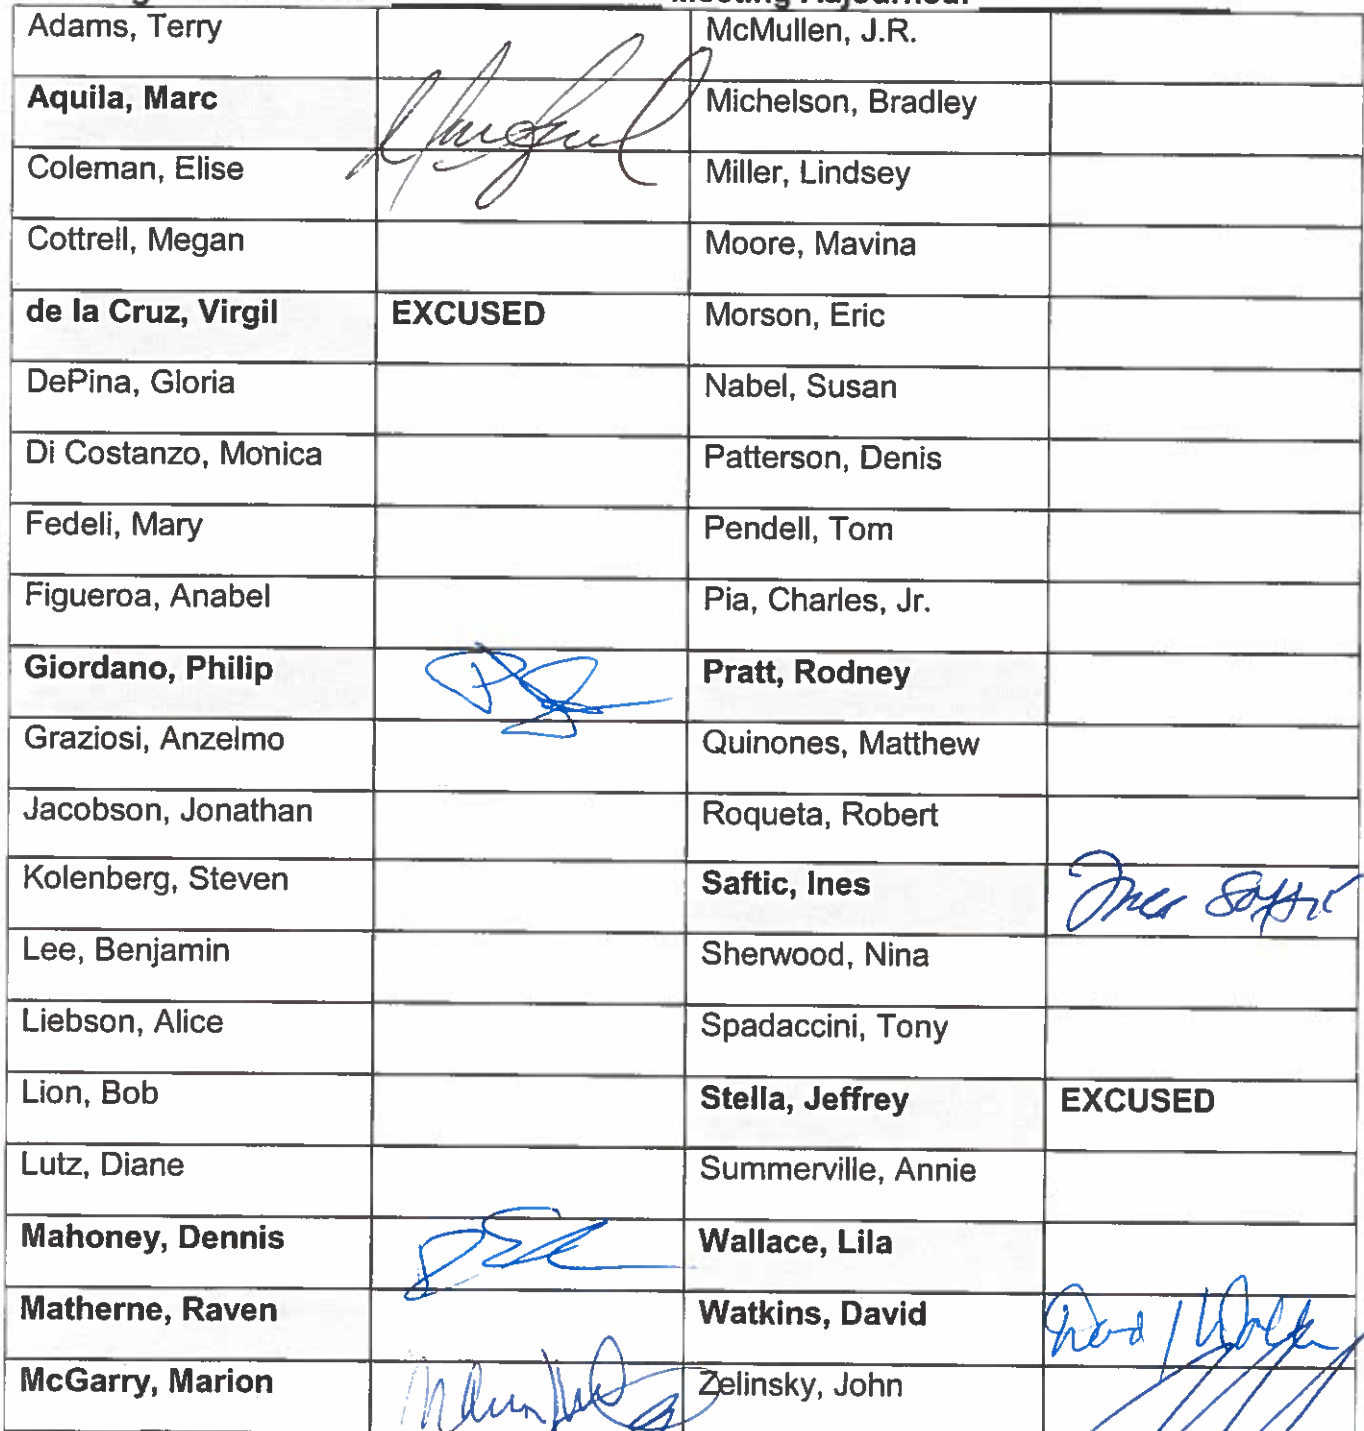 Adams, Terry McMullen, J.R.
Aquila, Marc Michelson, Bradley
Coleman, Elise Miller, Lindsey
Cottrell, Megan Moore, Mavina
de la Cruz, Virgil EXCUSED Morson, Eric
DePina, Gloria Nabel, Susan
Di Costanzo, Monica Patterson, Denis
Fedeli, Mary Pendell, Tom
Figueroa, Anabel Pia, Charles, Jr.
Giordano, Philip Pratt, Rodney
Graziosi, Anzelmo Quinones, Matthew
Jacobson, Jonathan Roqueta, Robert
Kolenberg, Steven Saftic, Ines Ines Saftic
Lee, Benjamin Sherwood, Nina
Liebson, Alice Spadaccini, Tony
Lion, Bob Stella, Jeffrey EXCUSED
Lutz, Diane Summerville, Annie
Mahoney, Dennis Wallace, Lila
Matherne, Raven Watkins, David
McGarry, Marion Zelinsky, John